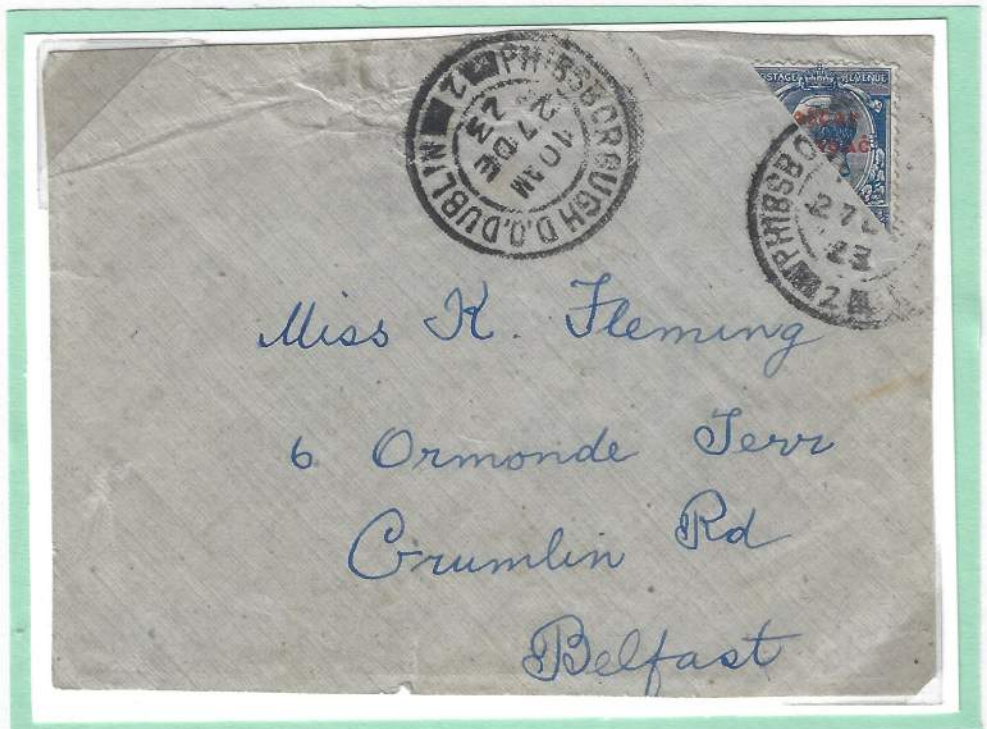 PHIBSBOROUGH D.O. DUBLIN
Z
10 AM
27 DE
23
POSTAGE REVENUE
PHIBSBO
27
23
Z
Miss K. Fleming
6 Ormonde Terr
Crumlin Rd
Belfast